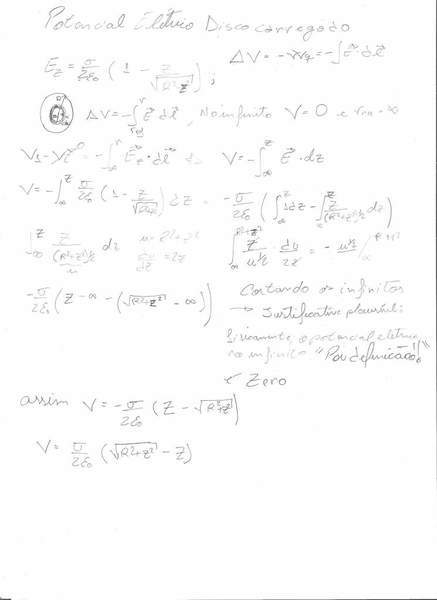 Potencial Elétrico Disco carregado
E_z = σ/2ε₀ (1 - z/√(R²+z²)) ; ΔV = = -∫E⃗·dl⃗
ΔV = -∫ E⃗·dl⃗ , No infinito V = 0 e
= -∫ E⃗·dl⃗ V = -∫_∞^z E⃗·dz
V = -∫_∞^z σ/2ε₀ (1 - z/√) dz = -σ/2ε₀ (∫_∞^z 1dz - ∫_∞^z z/(R²+z²)^½ dz)
∫_∞^z z/(R²+z²)^½ dz u = R²+z² du/dz = 2z ∫_∞^{R²+z²} z/u^½ · du/2z = - u^½
-σ/2ε₀ (z - ∞ - (√(R²+z²) - ∞)) Cortando os infinitos
→ Justificativa plausível:
o potencial elétrico
no infinito "Por definição!"
é Zero
assim V = -σ/2ε₀ (z - √(R²+z²))
V = σ/2ε₀ (√(R²+z²) - z)